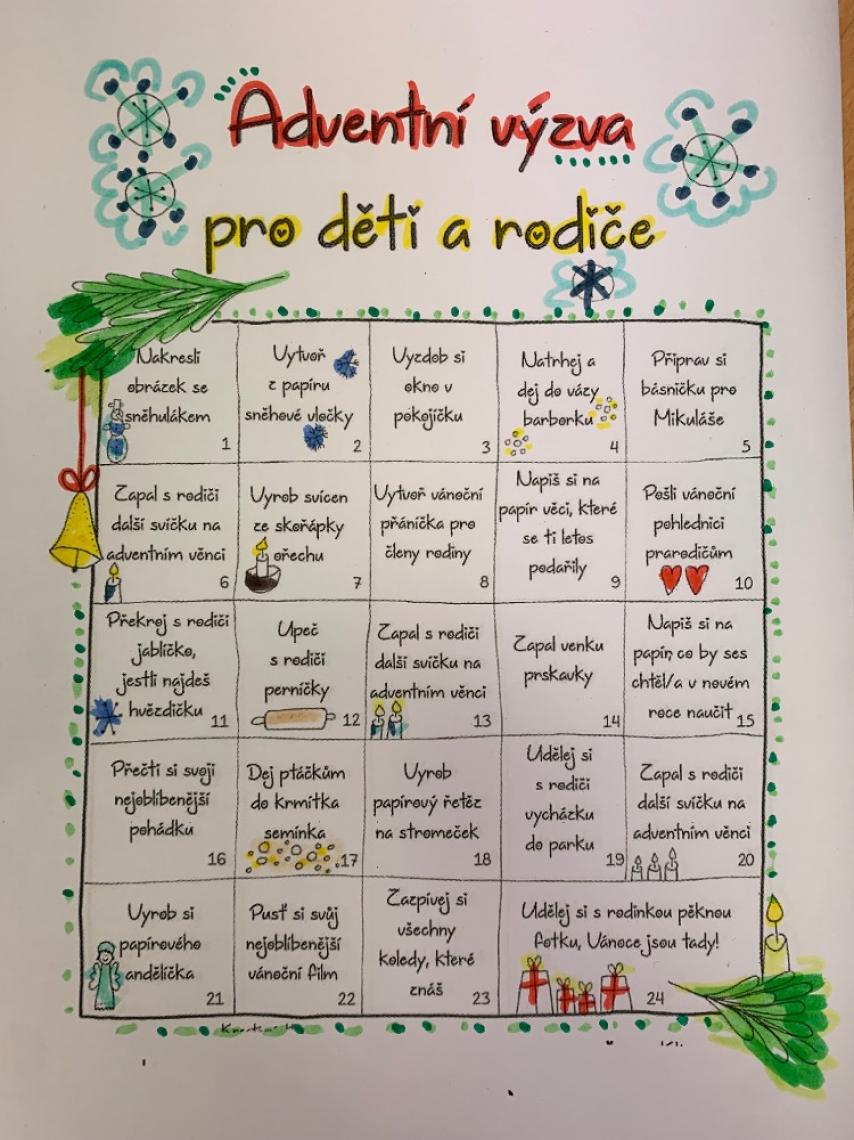 Adventní výzva
pro děti a rodiče
Nakresli
obrázek se
sněhulákem
1
Vytvoř
z papíru
sněhové vločky
2
Vyzdob si
okno v
pokojíčku
3
Natrhej a
dej do vázy
barborku
4
Připrav si
básničku pro
Mikuláše
5
Zapal s rodiči
další svíčku na
adventním věnci
6
Vyrob svícen
ze skořápky
ořechu
7
Vytvoř vánoční
přáníčka pro
členy rodiny
8
Napiš si na
papír věci, které
se ti letos
podařily
9
Pošli vánoční
pohlednici
prarodičům
10
Překroj s rodiči
jablíčko,
jestli najdeš
hvězdičku
11
Upeč
s rodiči
perníčky
12
Zapal s rodiči
další svíčku na
adventním věnci
13
Zapal venku
prskavky
14
Napiš si na
papír, co by ses
chtěl/a v novém
roce naučit
15
Přečti si svoji
nejoblíbenější
pohádku
16
Dej ptáčkům
do krmítka
semínka
17
Vyrob
papírový řetěz
na stromeček
18
Udělej si
s rodiči
vycházku
do parku
19
Zapal s rodiči
další svíčku na
adventním věnci
20
Vyrob si
papírového
andělíčka
21
Pusť si svůj
nejoblíbenější
vánoční film
22
Zazpívej si
všechny
koledy, které
znáš
23
Udělej si s rodinkou pěknou
fotku, Vánoce jsou tady!
24